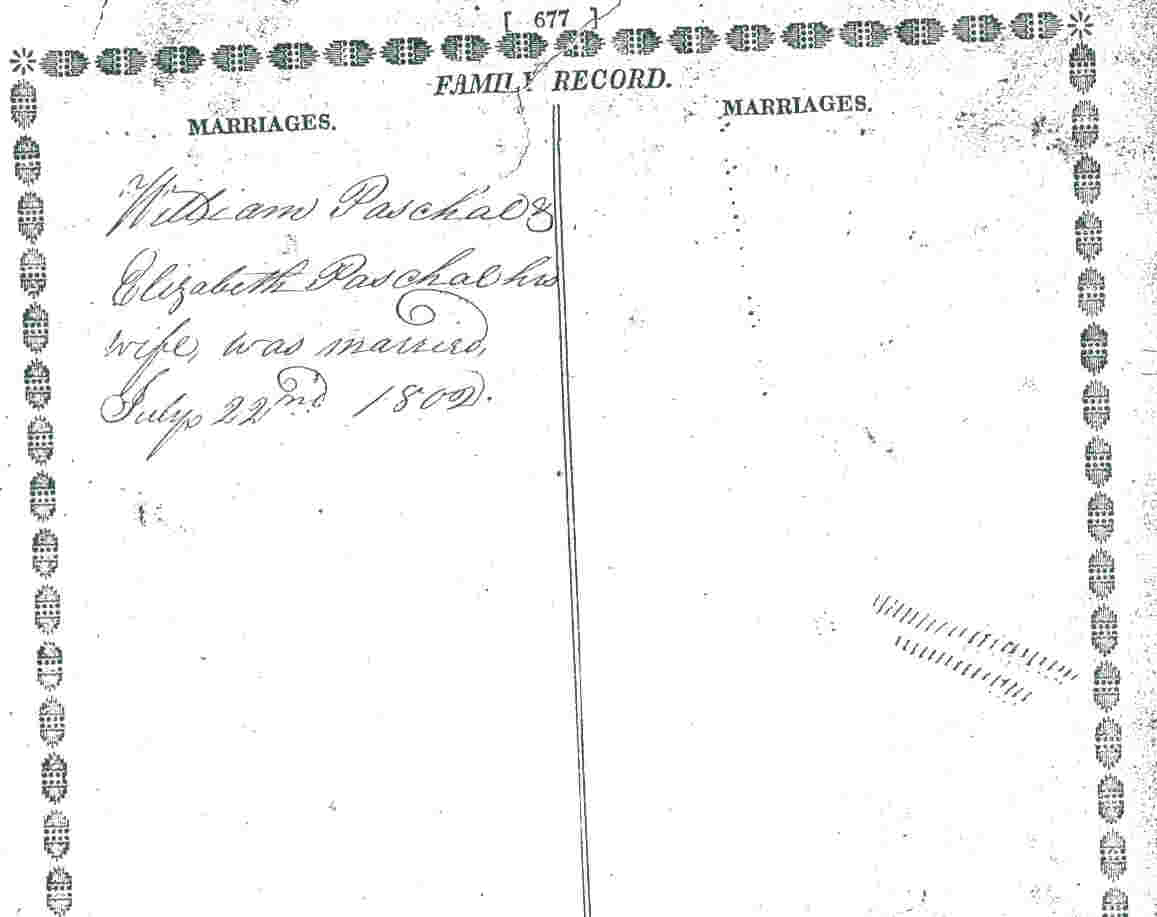 [ 677 ]
FAMILY RECORD.
MARRIAGES.
William Paschal &
Elizabeth Paschal his
wife, was married,
July 22nd 1802.
MARRIAGES.